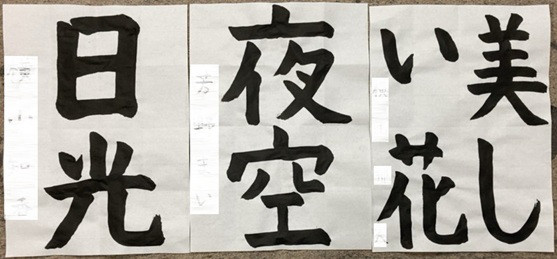 日光
夜空
美し
い花